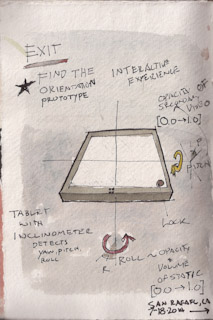 EXIT
★ FIND THE INTERACTIVE
ORIENTATION EXPERIENCE
PROTOTYPE
OPACITY OF
SECONDARY VIDEO
[0.0→1.0]
PITCH
TABLET
WITH
INCLINOMETER
DETECTS
YAW, PITCH,
ROLL
LOCK
R
ROLL ~ OPACITY
VOLUME
OF STATIC
[0.0→1.0]
SAN RAFAEL, CA